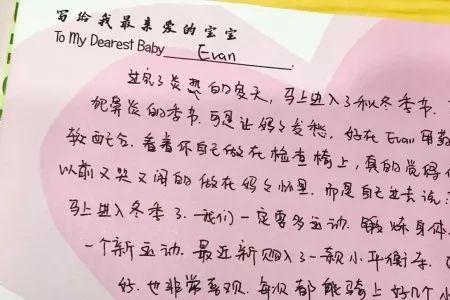 写给我最亲爱的宝宝
To My Dearest Baby Evan .
过完了炎热的夏天，马上进入了秋冬季节.
鼻炎的季节. 可是让妈妈发愁, 好在 Evan 用药
较配合. 看着你自己做在检查椅上, 真的觉得
以前又哭又闹的做在妈妈怀里. 而是自己过去说:
马上进入冬季了. 我们一定要多运动. 锻炼身体.
一个新运动. 最近新购入了一款小平衡车.
好. 也非常喜欢. 每次都能骑上好几个小